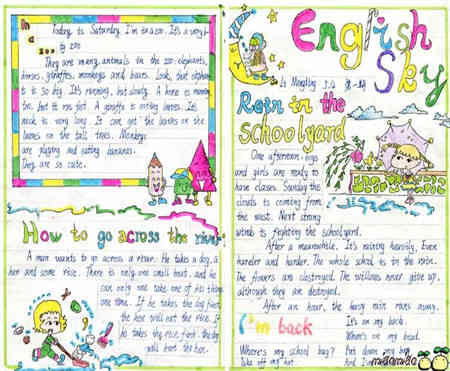 In a zoo
Today is Saturday. I'm in a zoo. It's a very
big zoo
They are many animals in the zoo: elephants,
horses, giraffes, monkeys and bears. Look, that elephant
It is so big. It's running, but slowly. A horse is running
too, but it runs fast. A giraffe is eating leaves. It's
neck is very long. It can get the leaves on the
leaves on the tall trees. Monkeys
are playing and eating bananas.
They are so cute.
How to go across the river
A man wants to go across a river. He takes a dog, a
hen and some rice. There is only one small boat, and he
can only one take one of his things
one time. If he takes the dog first,
the hen will eat the rice. If
he takes the rice first, the dog
will hunt the hen.
English
Sky
Rain in the
schoolyard
One afternoon, boys
and girls are ready to
have classes. Sunday the
clouds is coming from
the west. Next strong
wind is fighting the schoolyard.
After a meanwhile. It's raining heavily, Even
harder and harder. The whole school is in the rain.
The flowers are destroyed. The willows never give up,
although they are destroyed.
After an hour, the heavy rain runs away.
I'm back
Where's my school bag?
Take off my hat
It's on my back.
Where's on my head.
Put down my bag
And I'm